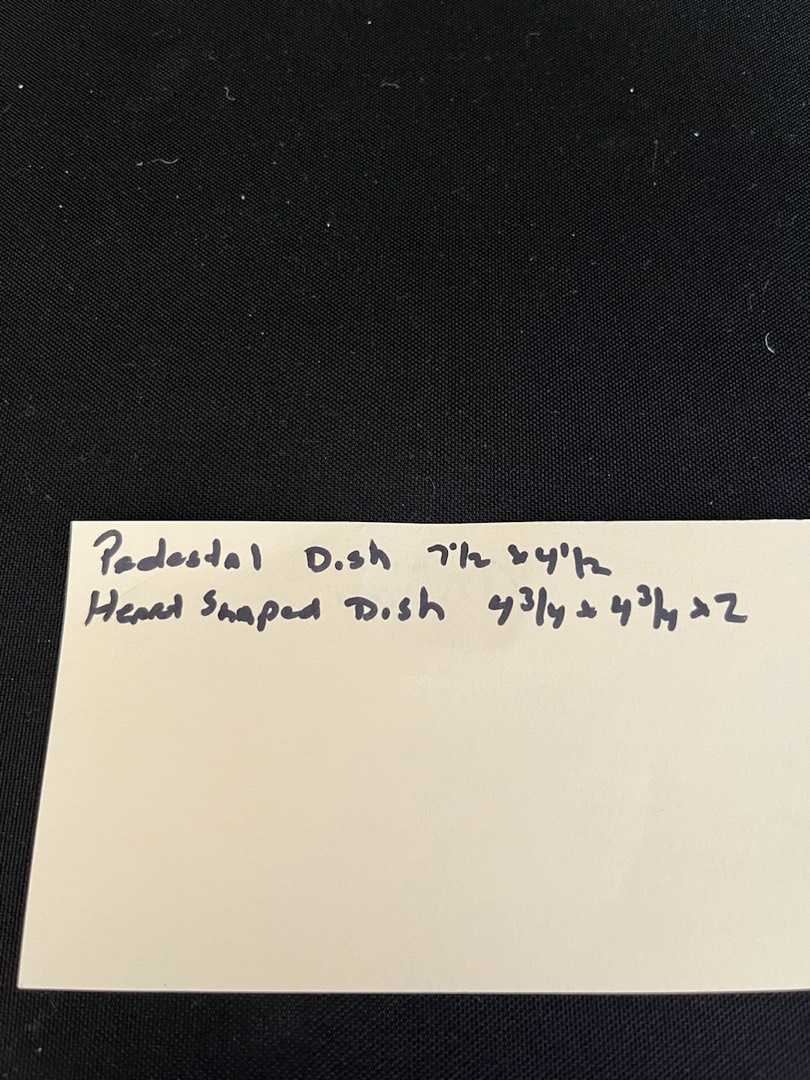 Pedestal Dish 7 1/2 x 4 1/2
Heart Shaped Dish 4 3/4 x 4 3/4 x 2